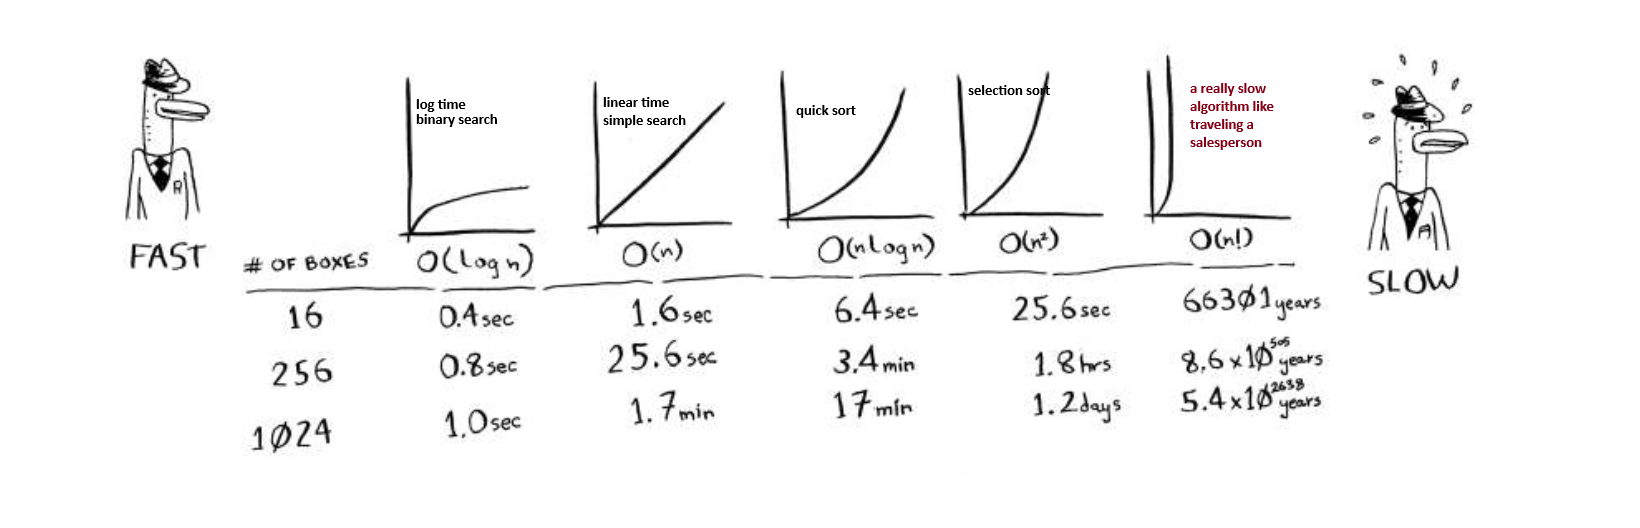 log time
binary search
linear time
simple search
quick sort
selection sort
a really slow
algorithm like
traveling a
salesperson
FAST
# OF BOXES
O(log n)
O(n)
O(n log n)
O(n²)
O(n!)
SLOW
16 0.4sec 1.6sec 6.4sec 25.6sec 66301years
256 0.8sec 25.6sec 3.4min 1.8hrs 8.6x10⁵⁰⁵ years
1024 1.0sec 1.7min 17min 1.2days 5.4x10²⁶³⁸ years